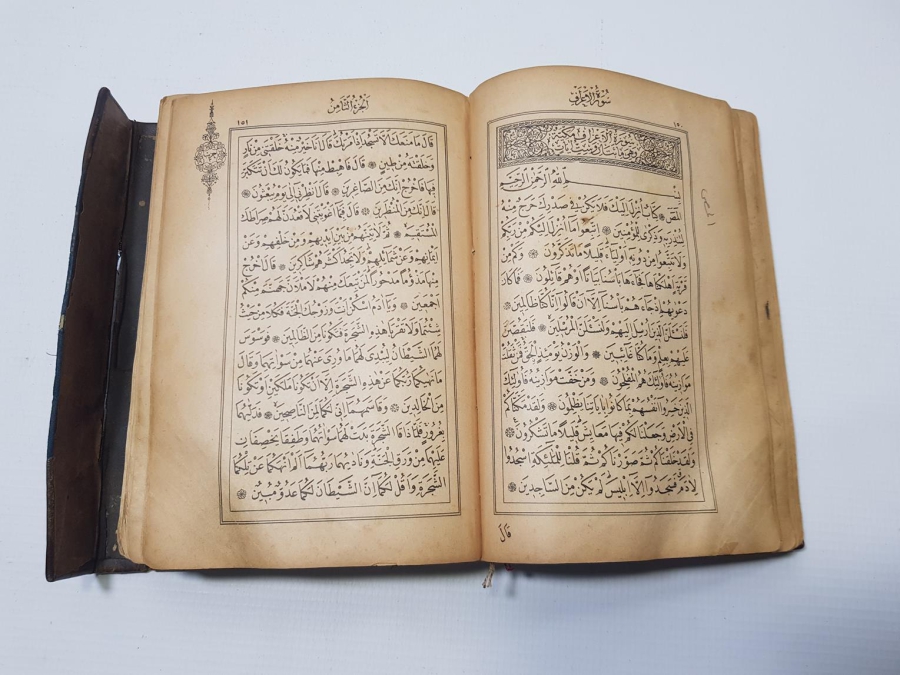 سُورَةُ الْاَعْرَافِ
سورة الاعراف مكية
بِسْمِ اللّٰهِ الرَّحْمٰنِ الرَّحِيمِ
الٓمٓصٓ ۞ كِتَابٌ اُنْزِلَ اِلَيْكَ فَلَا يَكُنْ فِي صَدْرِكَ حَرَجٌ مِنْهُ
لِتُنْذِرَ بِهِ وَذِكْرٰى لِلْمُؤْمِنِينَ ۞ اِتَّبِعُوا مَا اُنْزِلَ اِلَيْكُمْ مِنْ رَبِّكُمْ
وَلَا تَتَّبِعُوا مِنْ دُونِهِ اَوْلِيَاءَ قَلِيلًا مَا تَذَكَّرُونَ ۞ وَكَمْ مِنْ
قَرْيَةٍ اَهْلَكْنَاهَا فَجَاءَهَا بَأْسُنَا بَيَاتًا اَوْ هُمْ قَائِلُونَ ۞ فَمَا كَانَ
دَعْوٰيهُمْ اِذْ جَاءَهُمْ بَأْسُنَا اِلَّا اَنْ قَالُوا اِنَّا كُنَّا ظَالِمِينَ ۞
فَلَنَسْـَٔلَنَّ الَّذِينَ اُرْسِلَ اِلَيْهِمْ وَلَنَسْـَٔلَنَّ الْمُرْسَلِينَ ۞ فَلَنَقُصَّنَّ
عَلَيْهِمْ بِعِلْمٍ وَمَا كُنَّا غَائِبِينَ ۞ وَالْوَزْنُ يَوْمَئِذٍ الْحَقُّ فَمَنْ ثَقُلَتْ
مَوَازِينُهُ فَاُولٰئِكَ هُمُ الْمُفْلِحُونَ ۞ وَمَنْ خَفَّتْ مَوَازِينُهُ فَاُولٰئِكَ
الَّذِينَ خَسِرُوا اَنْفُسَهُمْ بِمَا كَانُوا بِاٰيَاتِنَا يَظْلِمُونَ ۞ وَلَقَدْ مَكَّنَّاكُمْ
فِي الْاَرْضِ وَجَعَلْنَا لَكُمْ فِيهَا مَعَايِشَ قَلِيلًا مَا تَشْكُرُونَ ۞
وَلَقَدْ خَلَقْنَاكُمْ ثُمَّ صَوَّرْنَاكُمْ ثُمَّ قُلْنَا لِلْمَلٰئِكَةِ اسْجُدُوا
لِاٰدَمَ فَسَجَدُوا اِلَّا اِبْلِيسَ لَمْ يَكُنْ مِنَ السَّاجِدِينَ ۞
قَالَ
اَلْجُزْءُ الثَّامِنُ
١٥١
قَالَ مَا مَنَعَكَ اَلَّا تَسْجُدَ اِذْ اَمَرْتُكَ قَالَ اَنَا خَيْرٌ مِنْهُ خَلَقْتَنِي مِنْ نَارٍ
وَخَلَقْتَهُ مِنْ طِينٍ ۞ قَالَ فَاهْبِطْ مِنْهَا فَمَا يَكُونُ لَكَ اَنْ تَتَكَبَّرَ
فِيهَا فَاخْرُجْ اِنَّكَ مِنَ الصَّاغِرِينَ ۞ قَالَ اَنْظِرْنِي اِلٰى يَوْمِ يُبْعَثُونَ ۞
قَالَ اِنَّكَ مِنَ الْمُنْظَرِينَ ۞ قَالَ فَبِمَا اَغْوَيْتَنِي لَاَقْعُدَنَّ لَهُمْ صِرَاطَكَ
الْمُسْتَقِيمَ ۞ ثُمَّ لَاٰتِيَنَّهُمْ مِنْ بَيْنِ اَيْدِيهِمْ وَمِنْ خَلْفِهِمْ وَعَنْ
اَيْمَانِهِمْ وَعَنْ شَمَائِلِهِمْ وَلَا تَجِدُ اَكْثَرَهُمْ شَاكِرِينَ ۞ قَالَ اخْرُجْ
مِنْهَا مَذْؤُمًا مَدْحُورًا لَمَنْ تَبِعَكَ مِنْهُمْ لَاَمْلَأَنَّ جَهَنَّمَ مِنْكُمْ
اَجْمَعِينَ ۞ وَيَا اٰدَمُ اسْكُنْ اَنْتَ وَزَوْجُكَ الْجَنَّةَ فَكُلَا مِنْ حَيْثُ
شِئْتُمَا وَلَا تَقْرَبَا هٰذِهِ الشَّجَرَةَ فَتَكُونَا مِنَ الظَّالِمِينَ ۞ فَوَسْوَسَ
لَهُمَا الشَّيْطَانُ لِيُبْدِيَ لَهُمَا مَا وُرِيَ عَنْهُمَا مِنْ سَوْاٰتِهِمَا وَقَالَ
مَا نَهٰيكُمَا رَبُّكُمَا عَنْ هٰذِهِ الشَّجَرَةِ اِلَّا اَنْ تَكُونَا مَلَكَيْنِ اَوْ تَكُونَا
مِنَ الْخَالِدِينَ ۞ وَقَاسَمَهُمَا اِنِّي لَكُمَا لَمِنَ النَّاصِحِينَ ۞ فَدَلّٰيهُمَا
بِغُرُورٍ فَلَمَّا ذَاقَا الشَّجَرَةَ بَدَتْ لَهُمَا سَوْاٰتُهُمَا وَطَفِقَا يَخْصِفَانِ
عَلَيْهِمَا مِنْ وَرَقِ الْجَنَّةِ وَنَادٰيهُمَا رَبُّهُمَا اَلَمْ اَنْهَكُمَا عَنْ تِلْكُمَا
الشَّجَرَةِ وَاَقُلْ لَكُمَا اِنَّ الشَّيْطَانَ لَكُمَا عَدُوٌّ مُبِينٌ ۞